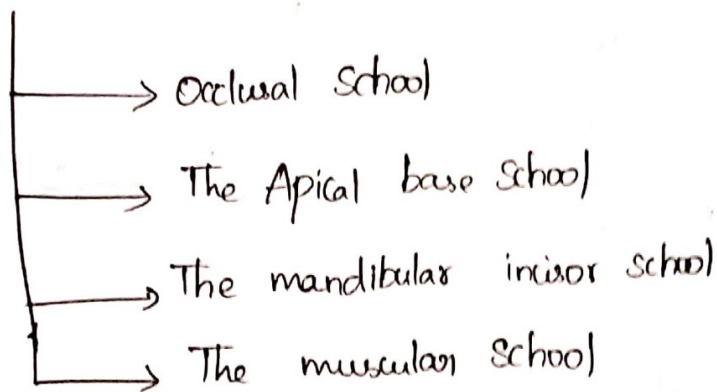 Occlusal School
The Apical base School
The mandibular incisor school
The muscular School